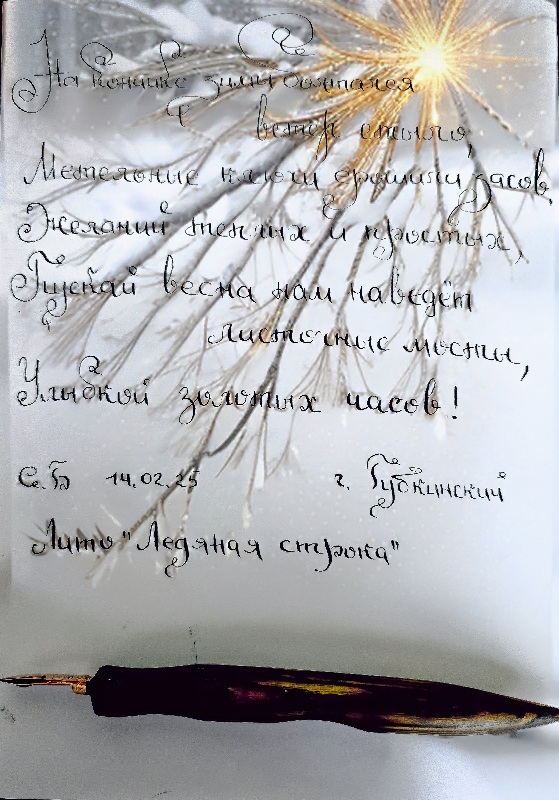 На кончике зимы болтался
ветер стыло,
Метельные ключи засов,
Желаний теплых и простых,
Пускай весна нам наведёт
листочные мосты,
Улыбкой золотых часов!
С.Б 14.02.25 г. Губкинский
Лито "Ледяная строка"